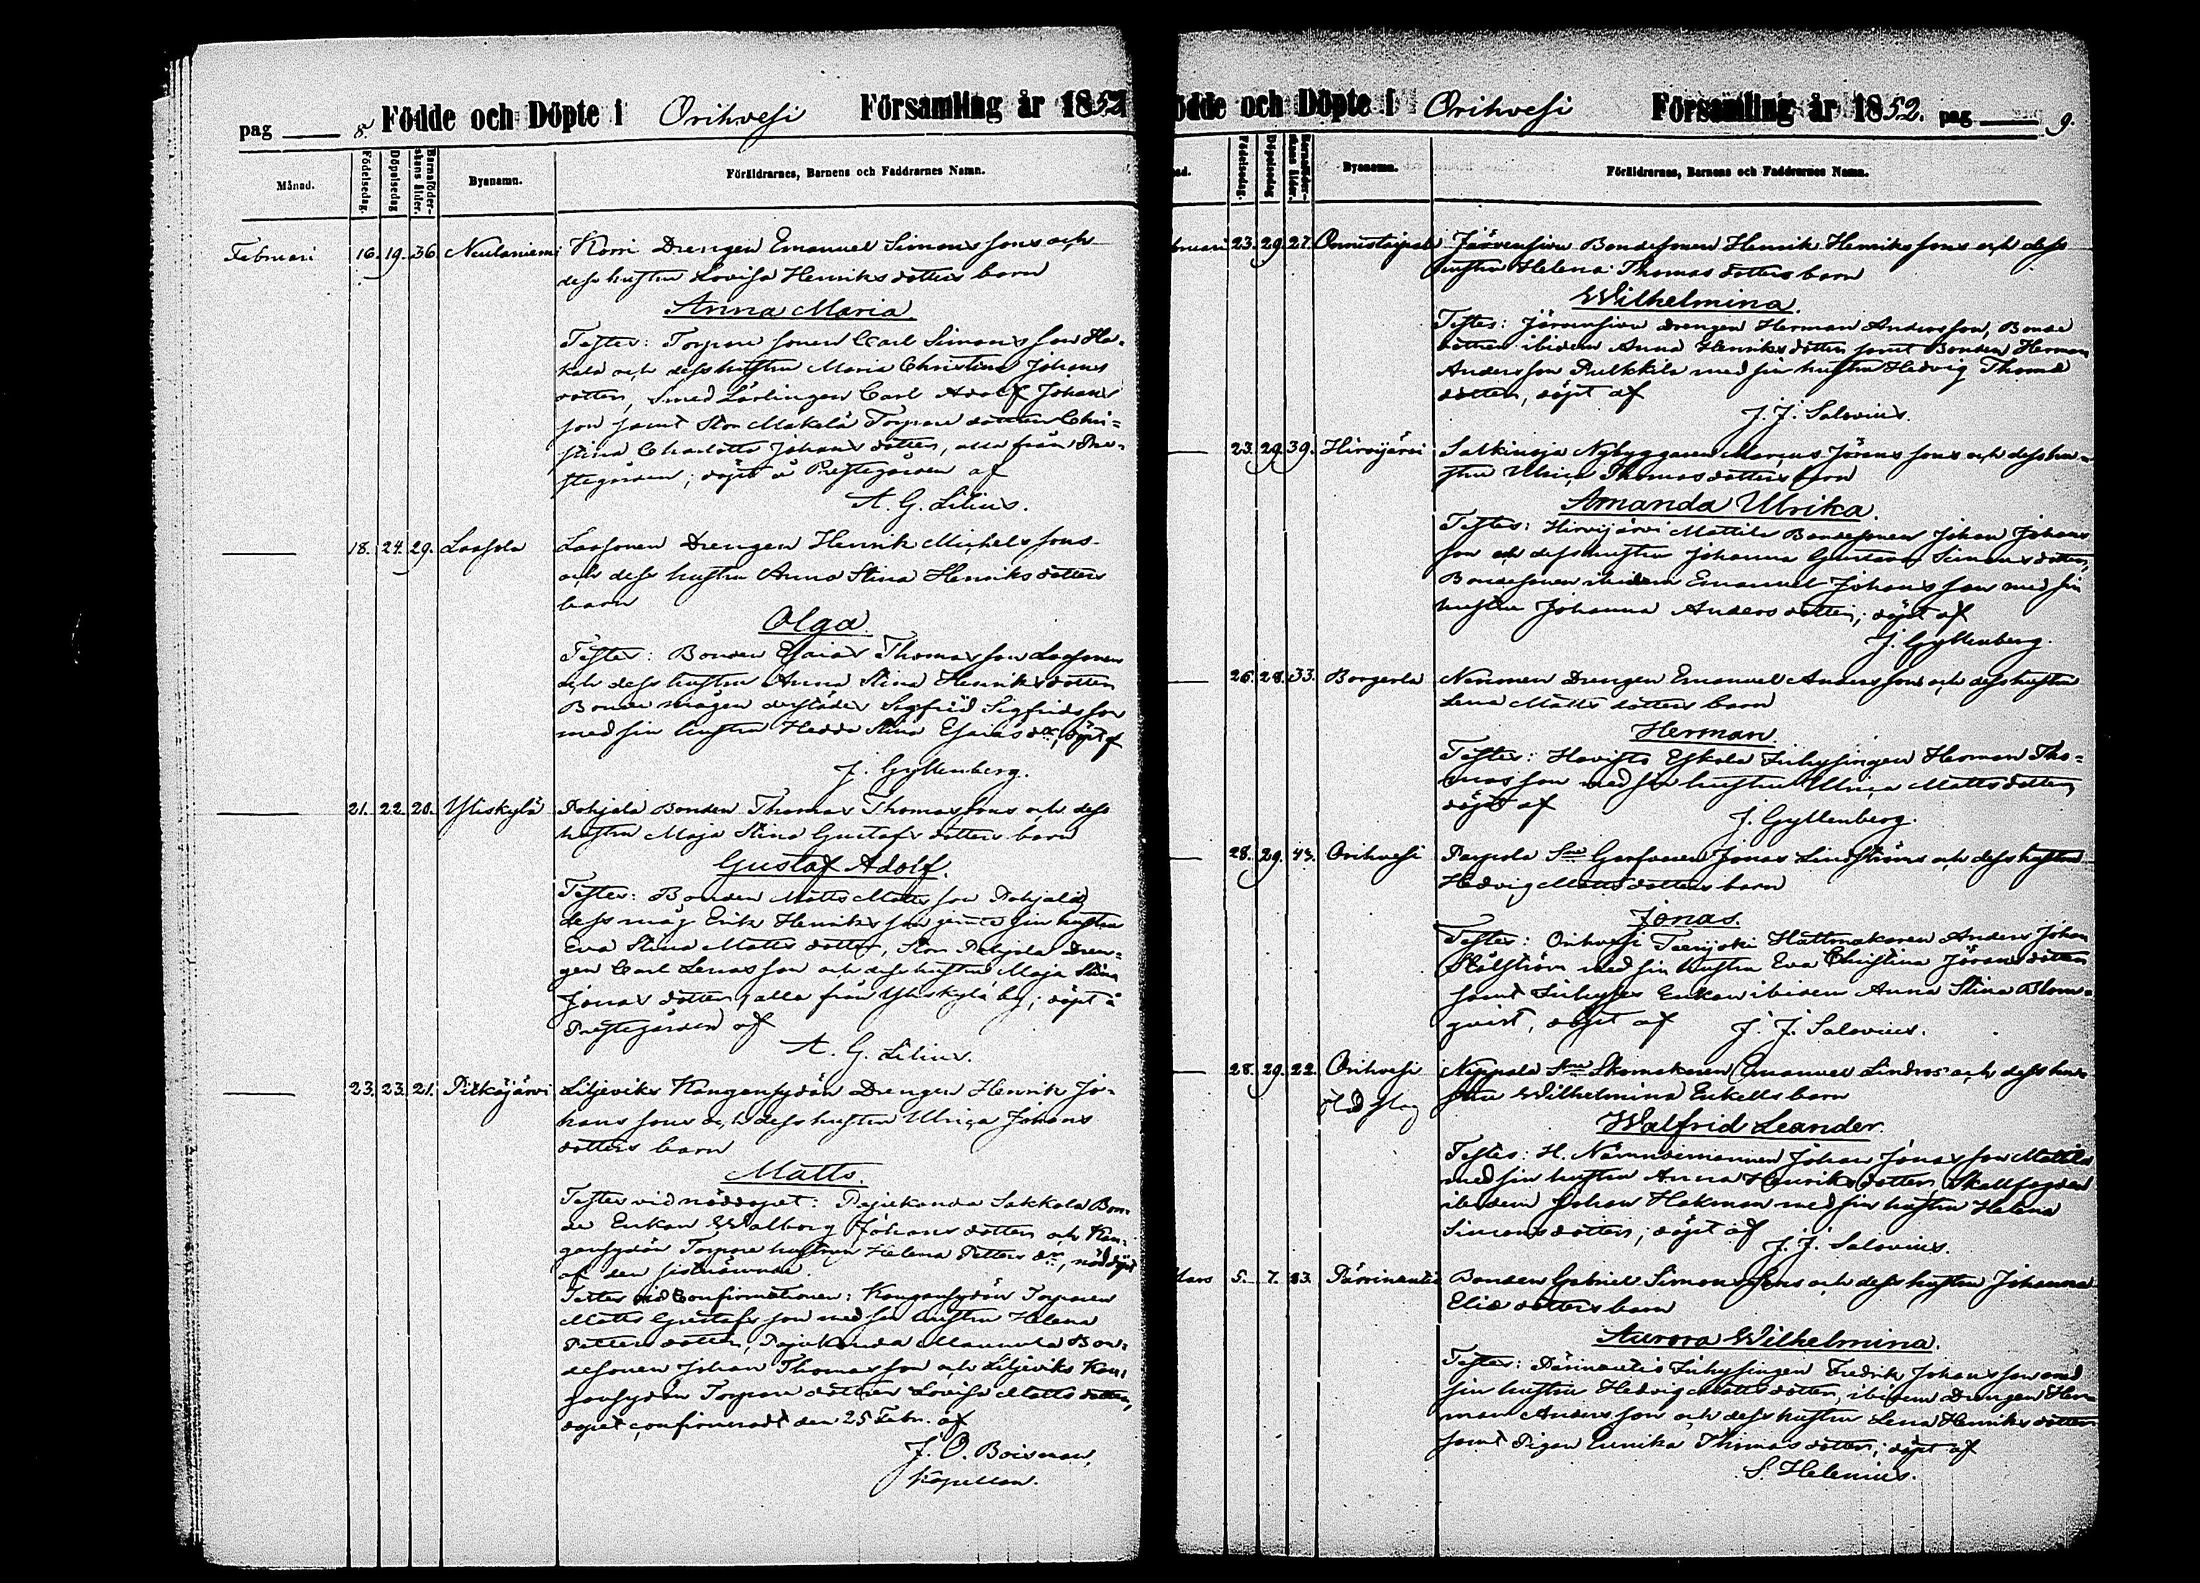 pag 8 Födde och Döpte i Orihvesi Församling år 1852
Månad. Födelsedag. Döpelsedag Barnaföderskans ålder. Bysnamn. Föräldrarnes, Barnens och Faddrarnes Namn.
Februari 16. 19. 36. Neulaniemi Korri Drengen Emanuel Simons sons och
dess hustru Lovisa Henriks dotters barn
Anna Maria.
Testes: Torpare sonen Carl Simons son Ha-
kala och dess hustru Maria Christina Johans
dotter, Smed Lärlingen Carl Adolf Johans
son samt Stor Makelä Torpare dottren Chri-
stina Charlotta Johans dotter, alla från Pre-
stegården; döpt å Prestegården af
A. G. Lilius.
18. 24. 29. Laasola Laasonen Drengen Henrik Michels sons
och dess hustru Anna Stina Henriks dotters
barn
Olga.
Testes: Bonden Esaias Thomas son Laasonen
och dess hustru Anna Stina Henriks dotter
Bonde mågen derstädes Sigfrid Sigfrids son
med sin hustru Hedda Stina Esaias dr, döpt af
J. Gyllenberg.
21. 22. 20. Yliskylä Pohjola Bonden Thomas Thomas sons och dess
hustru Maja Stina Gustafs dotters barn
Gustaf Adolf.
Testes: Bonden Matts Matts son Pohjola,
dess måg Erik Henriks son jemte sin hustru
Eva Stina Matts dotter, Stor Pohjola Dren-
gen Carl Lenas son och dess hustru Maja Stina
Jonas dotter, alla från Yliskylä by; döpt å
Prestegården af
A. G. Lilius.
23. 23. 21. Pitkäjärvi Liljeviks Kangensydän Drengen Henrik Jo-
hans sons och dess hustru Ulrica Johans
dotters barn
Matts.
Testes vid nöddopet: Pajukanda Sakkala Bon-
de Enkan Walborg Johans dotter och Kan-
gensydän Torpare hustrun Helena Petters dr, nöddöpt
af den sistnämnda.
Testes vid Confirmationen: Kangensydän Torparen
Matts Gustafs son med sin hustru Helena
Petters dotter, Pajukanda Mannila Bon-
desonen Johan Thomas son och Liljeviks Kan-
gensydän Torpare dottren Lovisa Matts dotter,
dopet confirmeradt den 25 Febr. af
J. O. Boisman,
Kapellan.
Födde och Döpte i Orihvesi Församling år 1852. pag 9.
Födelsedag. Döpelsedag Barnaföderskans ålder. Bysnamn. Föräldrarnes, Barnens och Faddrarnes Namn.
23. 29. 27. Onnistaipale Järvensivu Bondesonen Henrik Henriks sons och dess
hustru Helena Thomas dotters barn
Wilhelmina.
Testes: Järvensivu drengen Herman Anders son, Bonde
dottren ibidem Anna Henriks dotter samt Bonden Herman
Anders son Pulkkila med sin hustru Hedvig Thomæ
dotter, döpt af
J. J. Salovius.
23. 29. 39. Hirvijärvi Salkinoja Nybyggaren Marcus Jörans sons och dess hu-
stru Ulrica Thomas dotters barn
Amanda Ulrika.
Testes: Hirvijärvi Mattila Bondesonen Johan Johans
son och dess hustru Johanna Gustava Simons dotter,
Bondesonen ibidem Emanuel Johans son med sin
hustru Johanna Anders dotter; döpt af
J. Gyllenberg.
26. 28. 33. Bergerla Neronen Drengen Emanuel Anders sons och dess hustru
Lena Matts dotters barn
Herman.
Testes: Havisto Eskola Inhysingen Herman Tho-
mas son med sin hustru Ulrica Matts dotter,
döpt af
J. Gyllenberg.
28. 29. 43. Orihvesi Parpola Garfvaren Jonas Lindströms och dess hustru
Hedvig Matts dotters barn
Jonas.
Testes: Orihvesi Teerijoki Hattmakaren Anders Johan
Stålström med sin hustru Eva Christina Jörans dotter
samt Inhyses Enkan ibidem Anna Stina Blom-
qvist, döpt af J. J. Salovius.
28. 29. 22. Orihvesi Nappala Skomakaren Emanuel Lindros och dess hu-
stru Wilhelmina Enkells barn
Walfrid Leander.
Testes: H. Nämndemannen Johan Jonas son Mattila
med sin hustru Anna Henriks dotter, Skallfogden
ibidem Johan Hakman med sin hustru Helena
Simons dotter; döpt af
J. J. Salovius.
Mars 5. 7. 23. Pärrinautio Bonden Gabriel Simons Sons och dess hustru Johanna
Eliæ dotters barn
Aurora Wilhelmina.
Testes: Pärrinautio Inhysingen Fredrik Johans son med
sin hustru Hedvig Matts dotter, ibidem Drengen Her-
man Anders son och dess hustru Lena Henriks dotter
samt Pigan Eunika Thomas dotter; döpt af
S. Helenius.